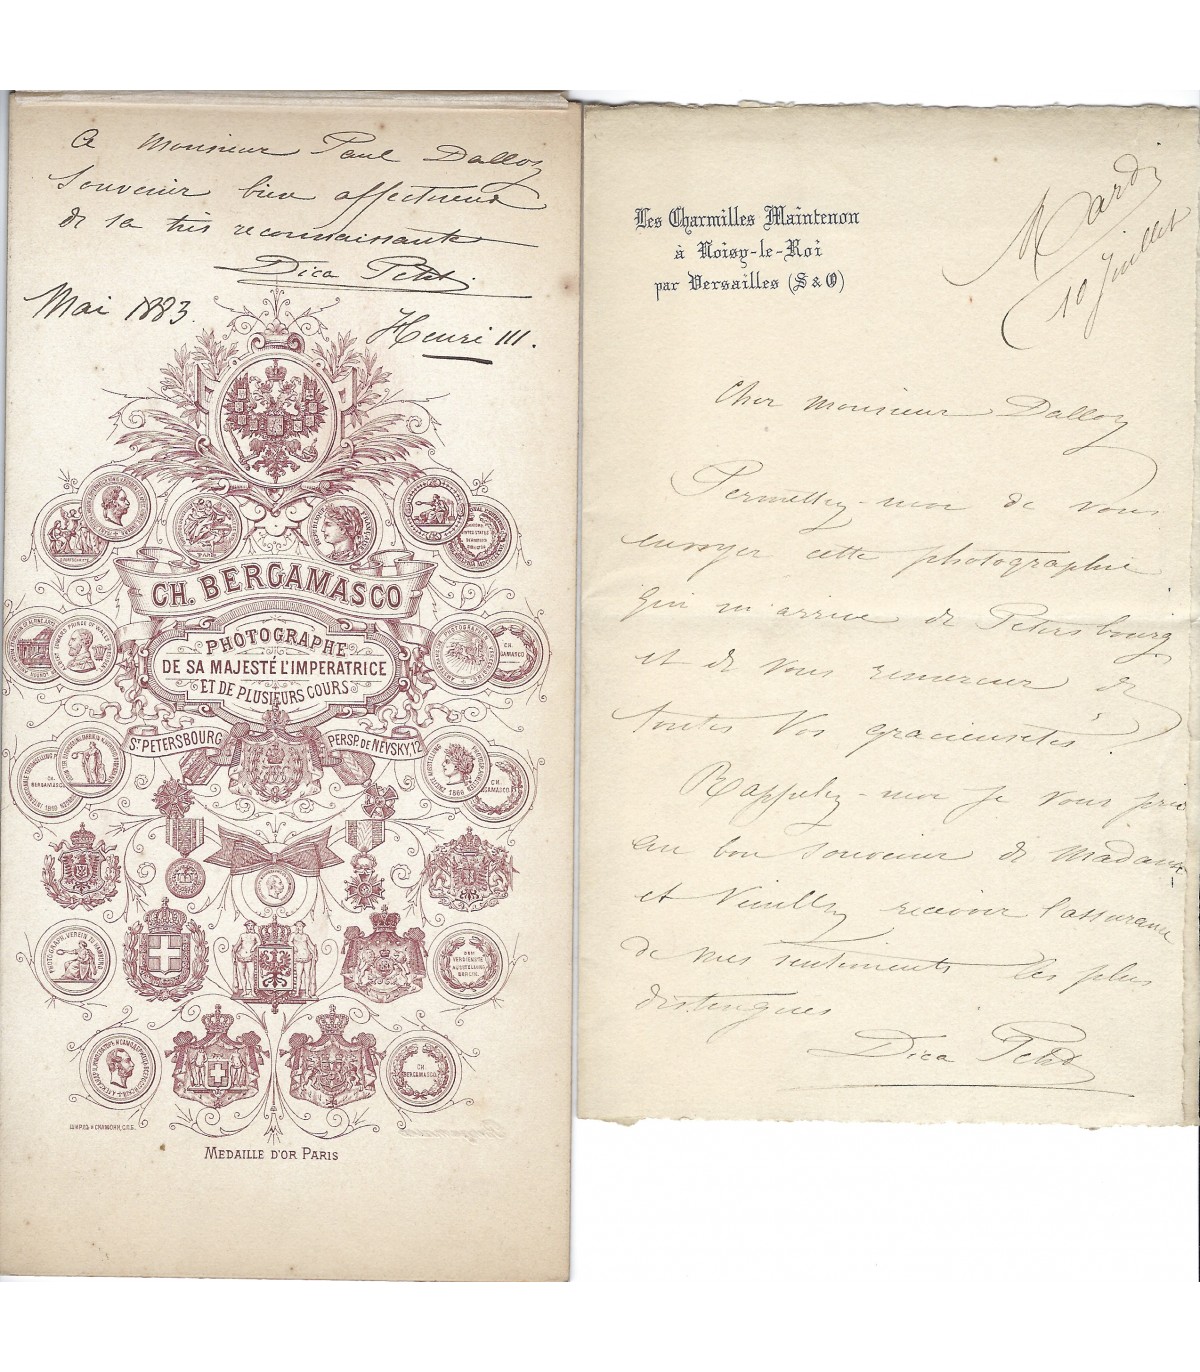 A Monsieur Paul Dalloz
Souvenir bien affectueux
de sa très reconnaissante
Dica Petit
Mai 1883.
Henri III.
CH. BERGAMASCO
PHOTOGRAPHE
DE SA MAJESTÉ L'IMPERATRICE
ET DE PLUSIEURS COURS
ST PETERSBOURG
PERSP. DE NEVSKY, 12
PARIS
CH. BERGAMASCO
1866
CH. BERGAMASCO
PHOTOGRAPH. VEREIN ZU HAMBURG
DEM VERDIENSTE AUSSTELLUNG BERLIN.
CH. BERGAMASCO
MEDAILLE D'OR PARIS
Les Charmilles Maintenon
à Noisy-le-Roi
par Versailles (S & O)
Mardi
10 Juillet
Cher Monsieur Dalloz
Permettez-moi de vous
envoyer cette photographie
qui m'arrive de Petersbourg
et de vous remercier de
toutes vos gracieusetés.
Rappelez-moi je vous prie
au bon souvenir de Madame
et Veuillez recevoir l'assurance
de mes sentiments les plus
distingués
Dica Petit